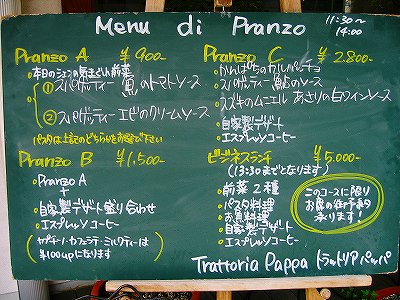 Menu di Pranzo
11:30〜
14:00
Pranzo A ¥900-
•本日のシェフの気まぐれ前菜
① スパゲッティー のトマトソース
② スパゲッティー エビのクリームソース
パスタは上記のどちらかをお選び下さい
Pranzo B ¥1,500-
• Pranzo A
+
•自家製デザート盛り合わせ
•エスプレッソコーヒー
(カプチーノ・カフェラテ・ミルクティーは
¥100upになります
Pranzo C ¥2,800-
•かんぱちのカルパッチョ
•スパゲッティー のソース
•スズキのムニエル あさりの白ワインソース
•自家製デザート
•エスプレッソコーヒー
ビジネスランチ ¥5,000-
(13:30までとなります)
•前菜2種
•パスタ料理
•お魚料理
•自家製デザート
•エスプレッソコーヒー
このコースに限り
お席の御予約
承ります!
Trattoria Pappa トラットリア パッパ